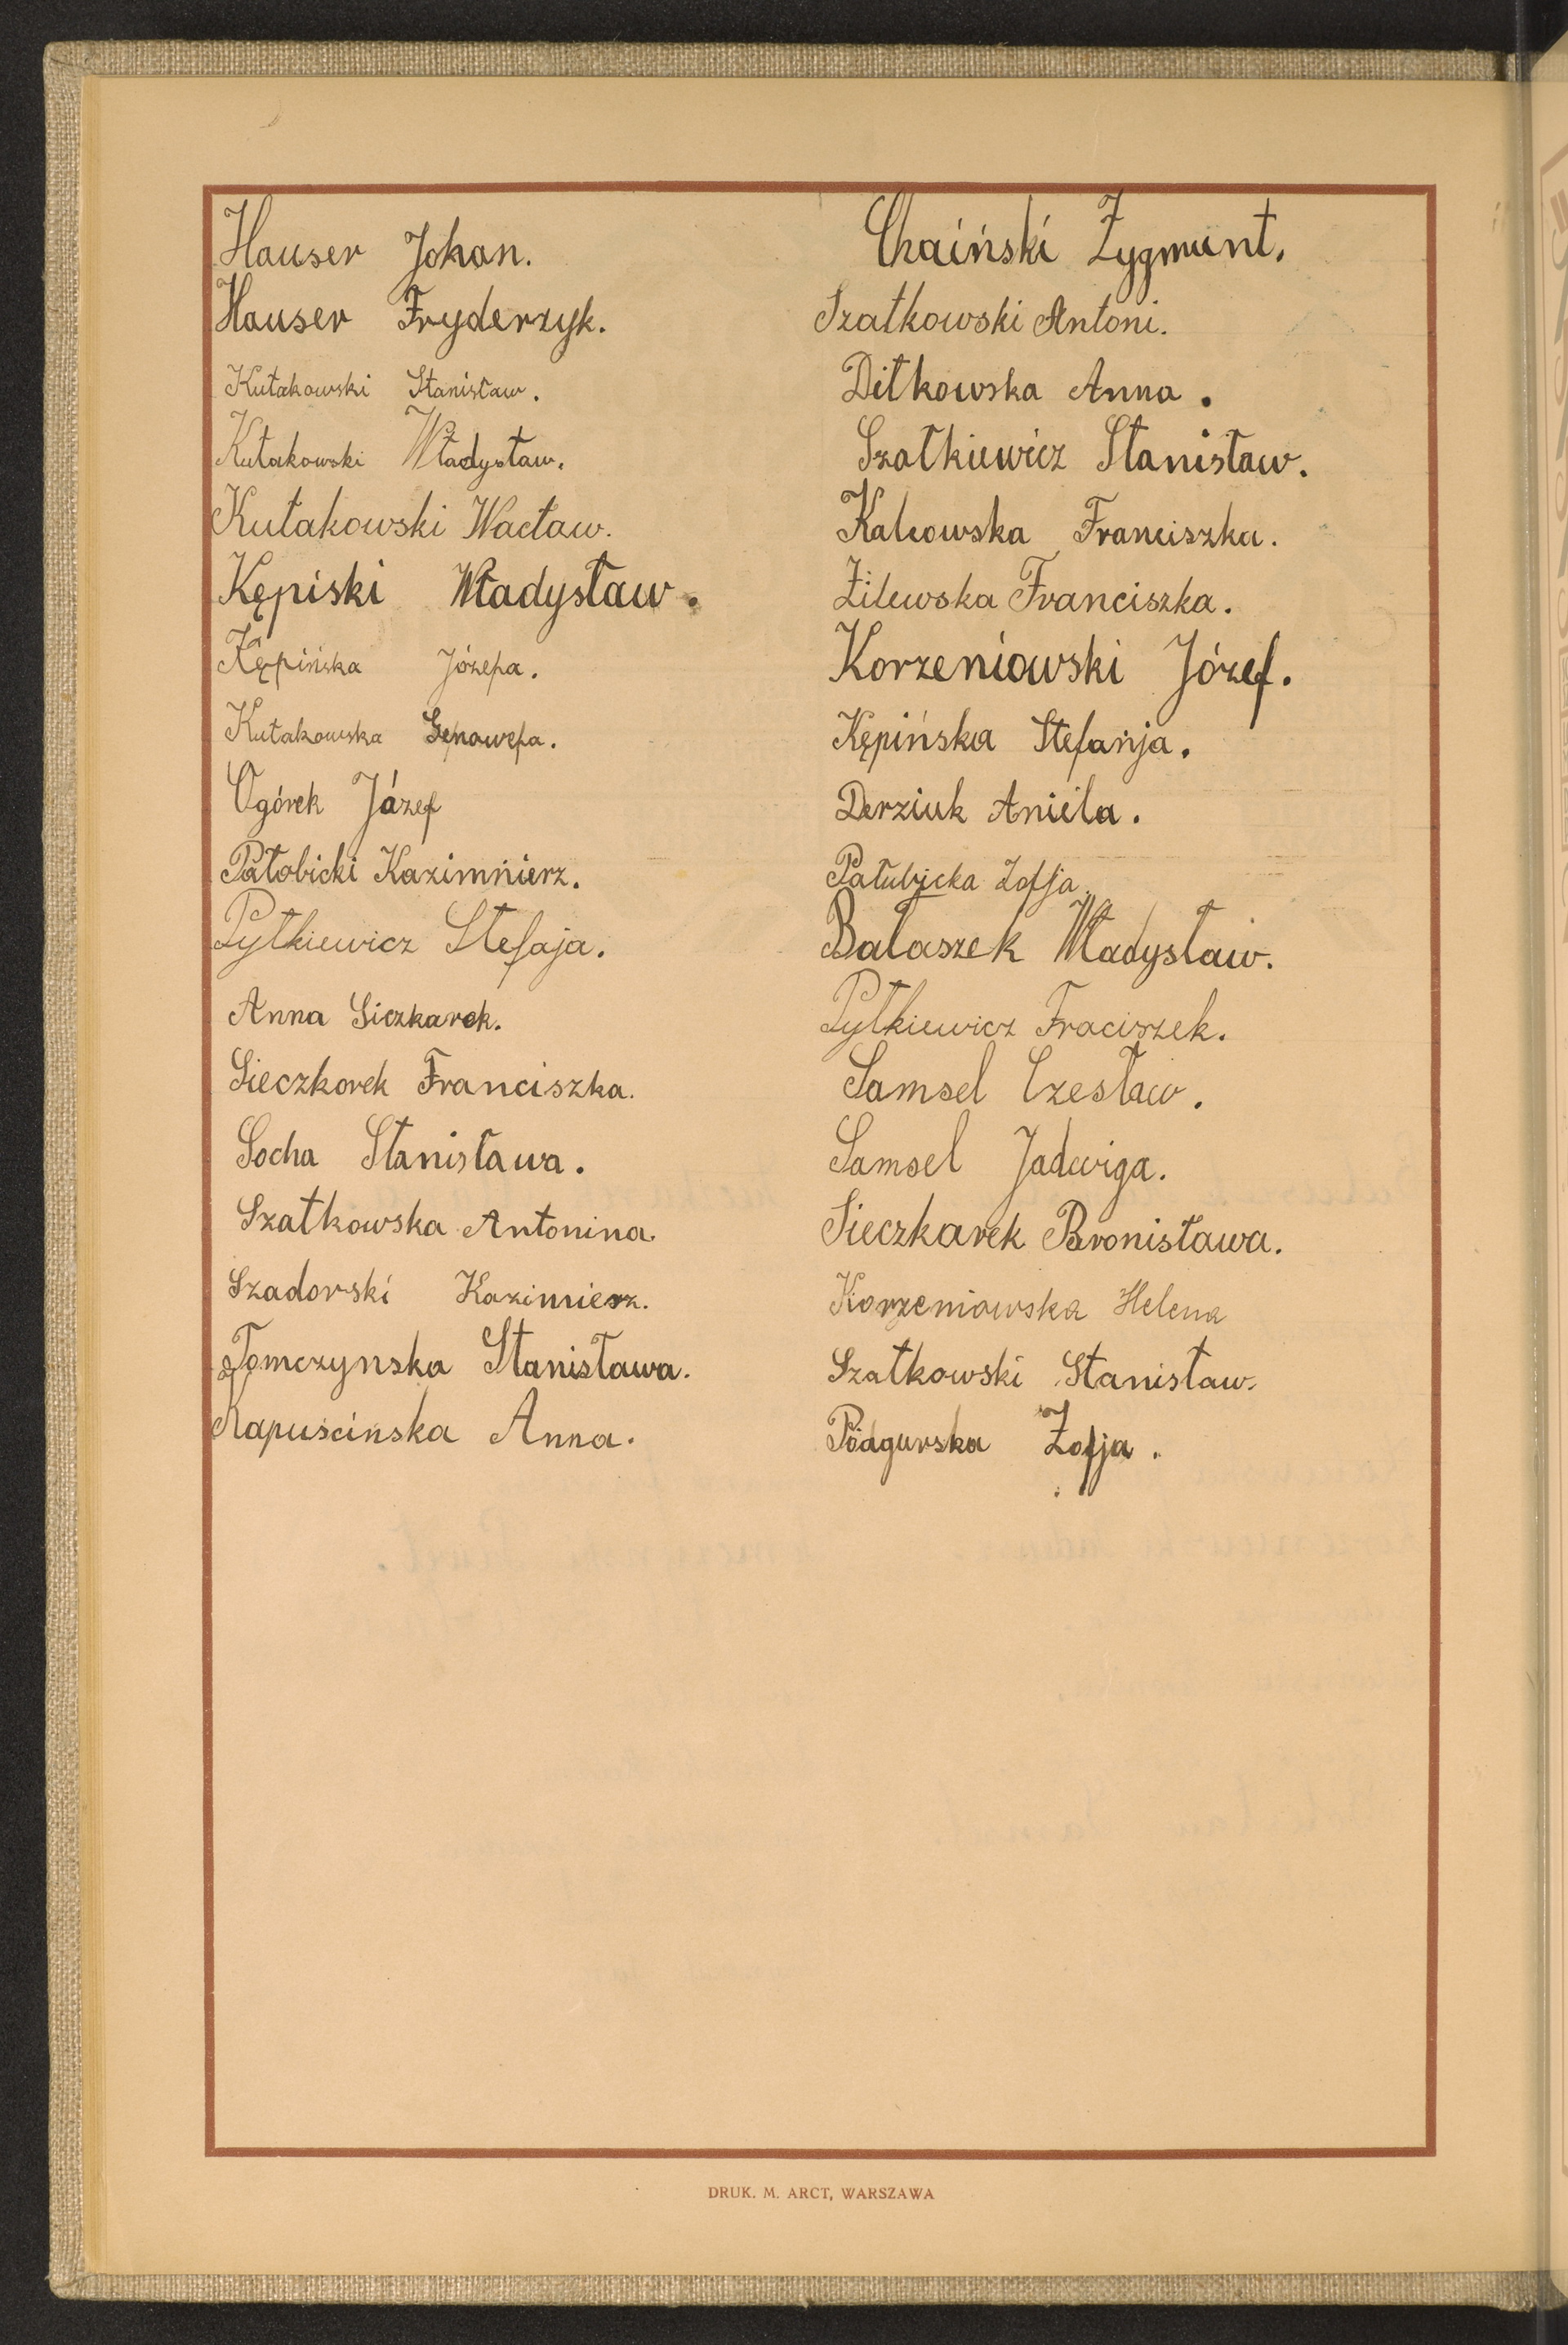 Hauser Johan.
Hauser Fryderzyk.
Kułakowski Stanisław.
Kułakowski Władysław.
Kułakowski Wacław.
Kępiski Władysław.
Kępińska Józefa.
Kułakowska Genowefa.
Ogórek Józef
Pałobicki Kazimnierz.
Pytkiewicz Stefaja.
Anna Siczkarek.
Sieczkorek Franciszka.
Socha Stanisława.
Szatkowska Antonina.
Szadorski Kazimierz.
Tomczynska Stanisława.
Kapuscinska Anna.
Chaiński Zygmunt.
Szatkowski Antoni.
Ditkowska Anna.
Szatkiewicz Stanisław.
Kalcowska Franciszka.
Żilewska Franciszka.
Korzeniowski Józef.
Kępińska Stefanja.
Derziuk Aniela.
Pałubicka Zofja.
Bałaszek Władysław.
Pytkiewicz Fraciszek.
Samsel Czesław.
Samsel Jadwiga.
Sieczkarek Bronisława.
Korzeniowska Helena
Szatkowski Stanisław.
Pódgurska Zofja.
DRUK. M. ARCT, WARSZAWA